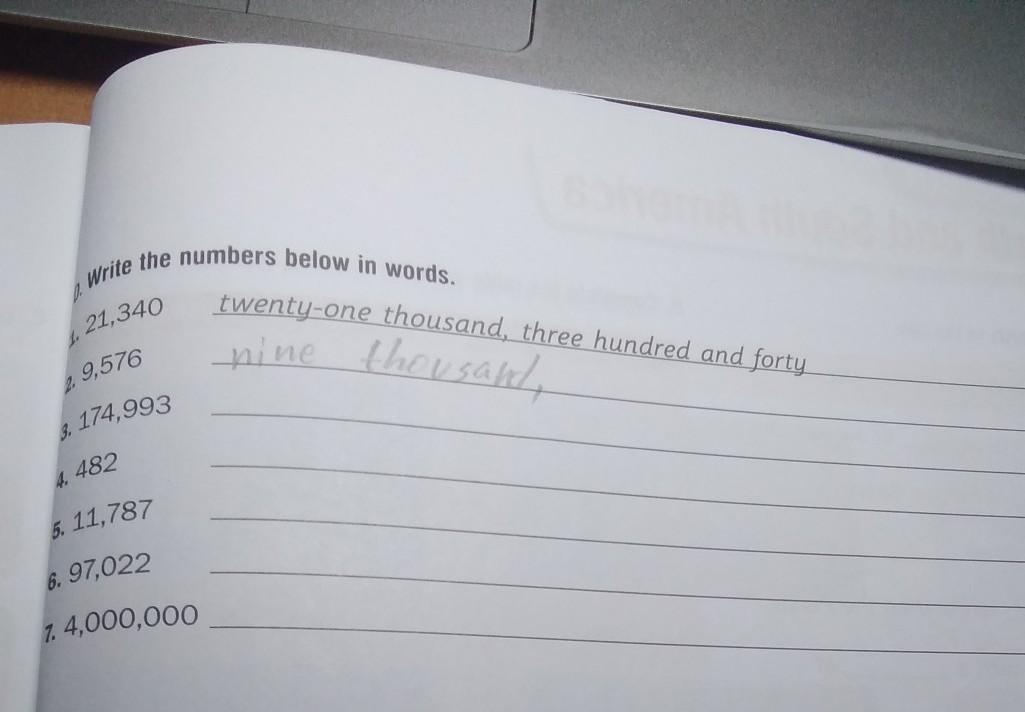 D. Write the numbers below in words.
1. 21,340 twenty-one thousand, three hundred and forty
2. 9,576 nine thousand,
3. 174,993
4. 482
5. 11,787
6. 97,022
7. 4,000,000